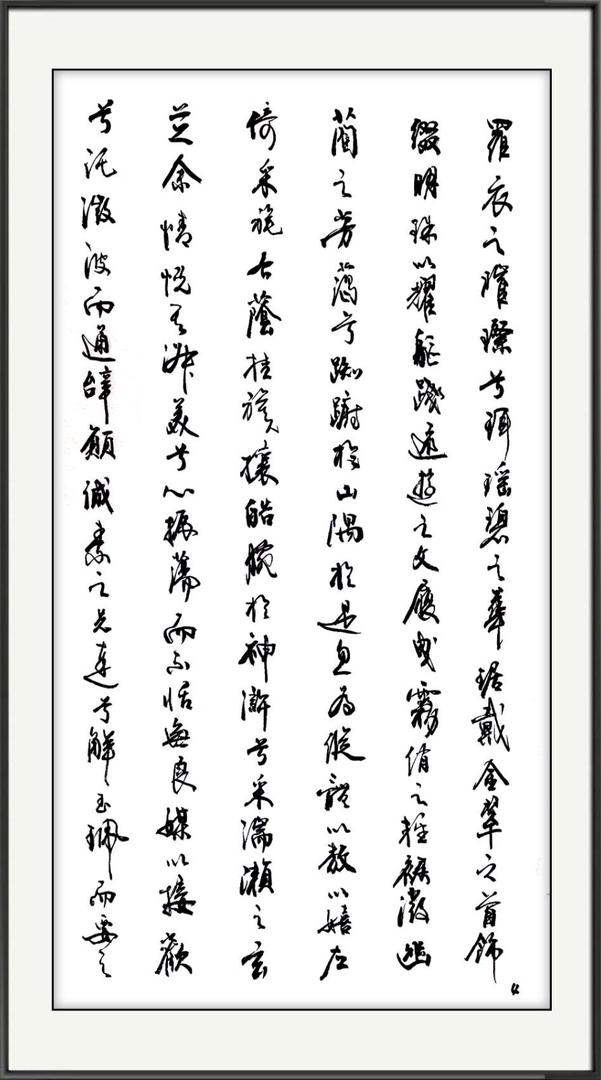 羅衣之璀璨兮珥瑶碧之華琚戴金翠之首飾
綴明珠以耀軀踐遠遊之文履曳霧綃之輕裾微幽
蘭之芳藹兮踟躕於山隅於是忽焉縱體以敖以嬉左
倚采旄右蔭桂旗攘皓腕於神滸兮采湍瀨之玄
芝余情悅其淑美兮心振蕩而不怡無良媒以接歡
兮託微波而通辭願誠素之先達兮解玉珮而要之